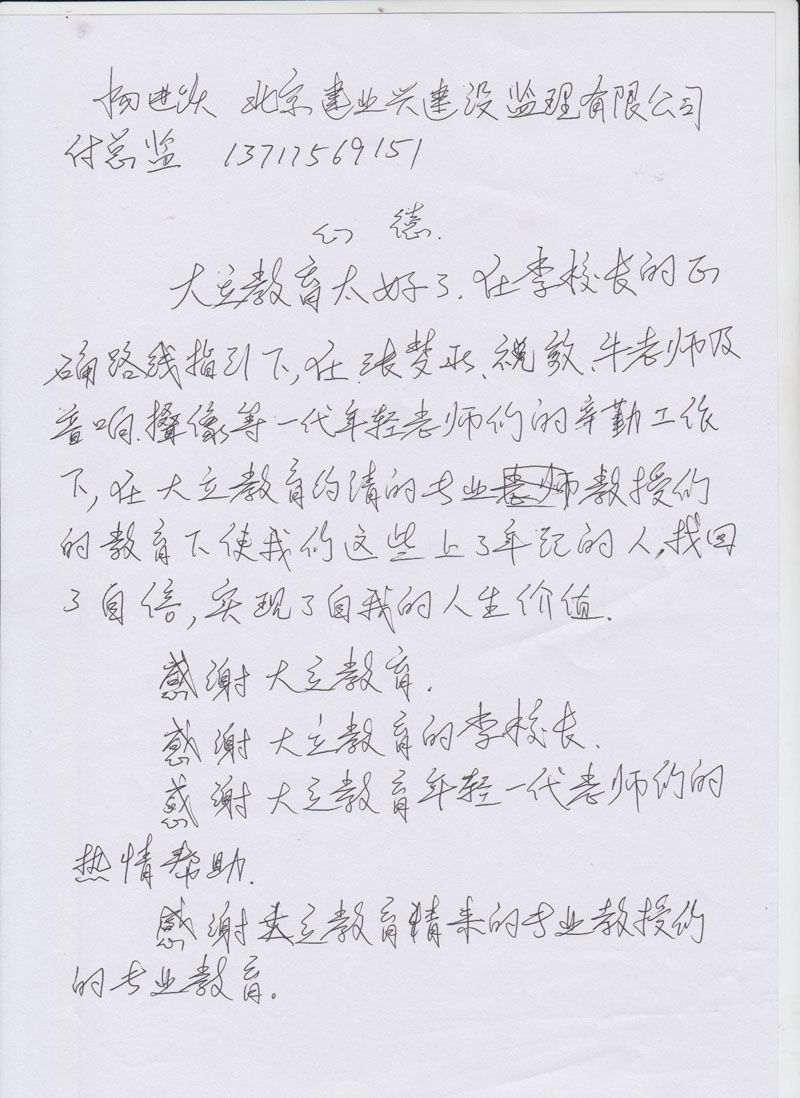 杨进跃 北京建业兴建设监理有限公司
付总监 13717569151
心 德.
大立教育太好了.在李校长的正
确路线指引下,在张梦、祝效、牛老师及
音响.摄像等一代年轻老师们的辛勤工作
下,在大立教育约请的专业教授们
的教育下使我们这些上了年纪的人,找回
了自信,实现了自我的人生价值.
感谢大立教育.
感谢大立教育的李校长.
感谢大立教育年轻一代老师们的
热情帮助.
感谢大立教育请来的专业教授们
的专业教育。